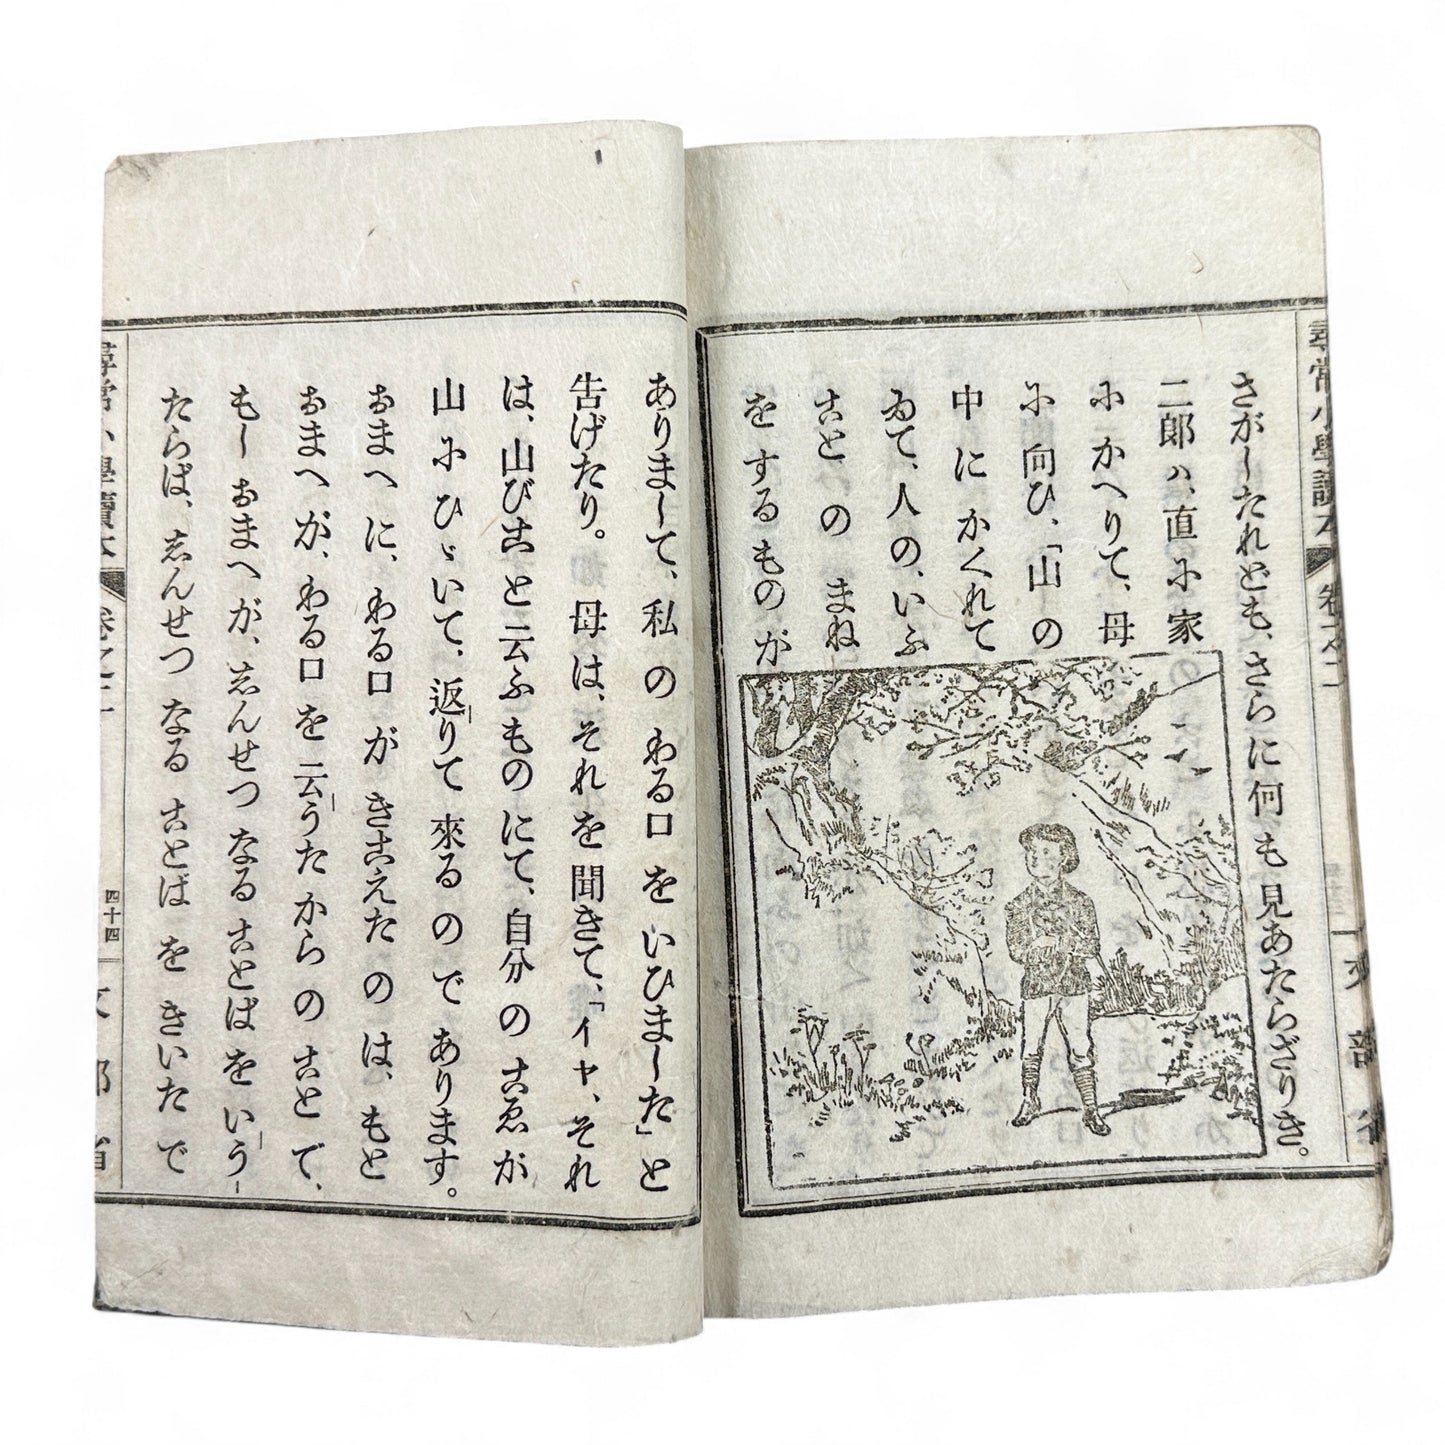 尋常小學讀本 卷之二
文部省
さがしたれども、さらに何も見あたらざりき。
二郎ハ、直に家
にかへりて、母
に向ひ、「山の
中にかくれて
ゐて、人の、いふ
ことの まね
をするものが
ありまして、私のわる口をいひました」と
告げたり。母は、それを聞きて、「イヤ、それ
は、山びこと云ふものにて、自分のこゑが
山にひゞいて、返りて來るのであります。
おまへに、わる口がきこえたのは、もと
おまへが、わる口を云うたからのことで、
もし おまへが、しんせつなることばをいう
たらば、しんせつなる ことばをきいたで
尋常小學讀本 卷之二
四十四
文部省